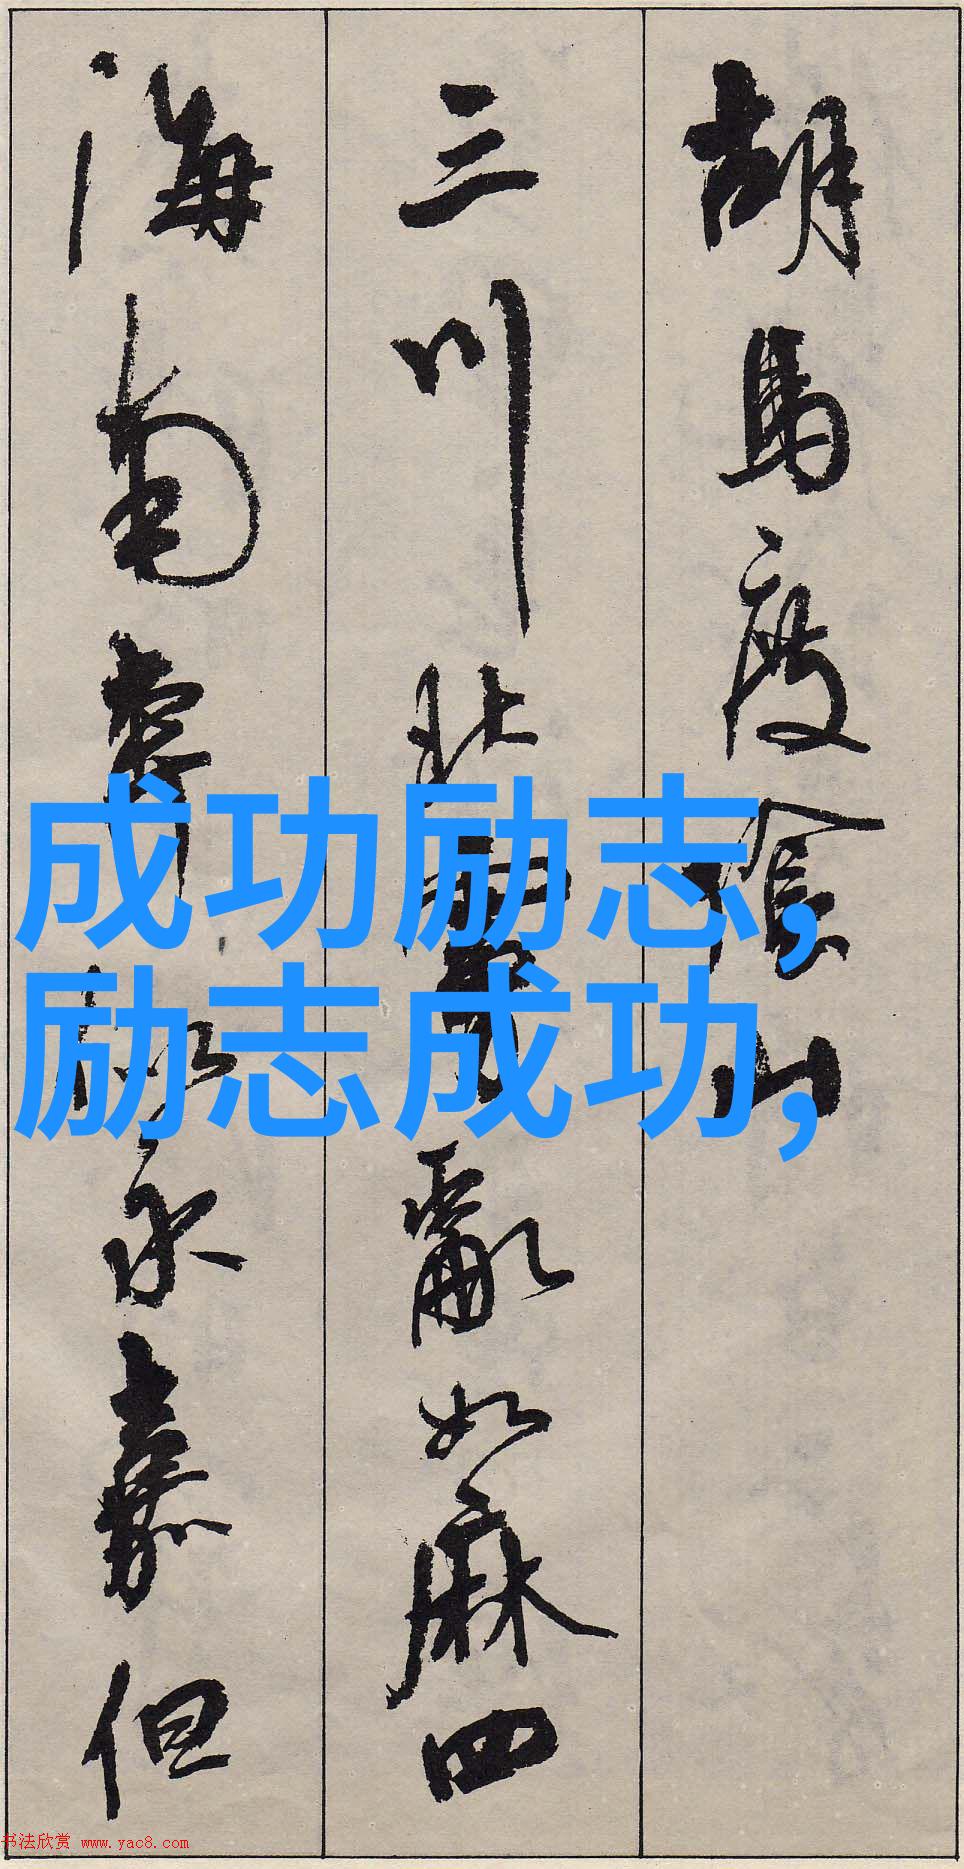 胡馬度陰山
三川北虜亂如麻四
海南奔似永嘉但
成功励志,
励志成功,
书法欣赏 www.yac8.com